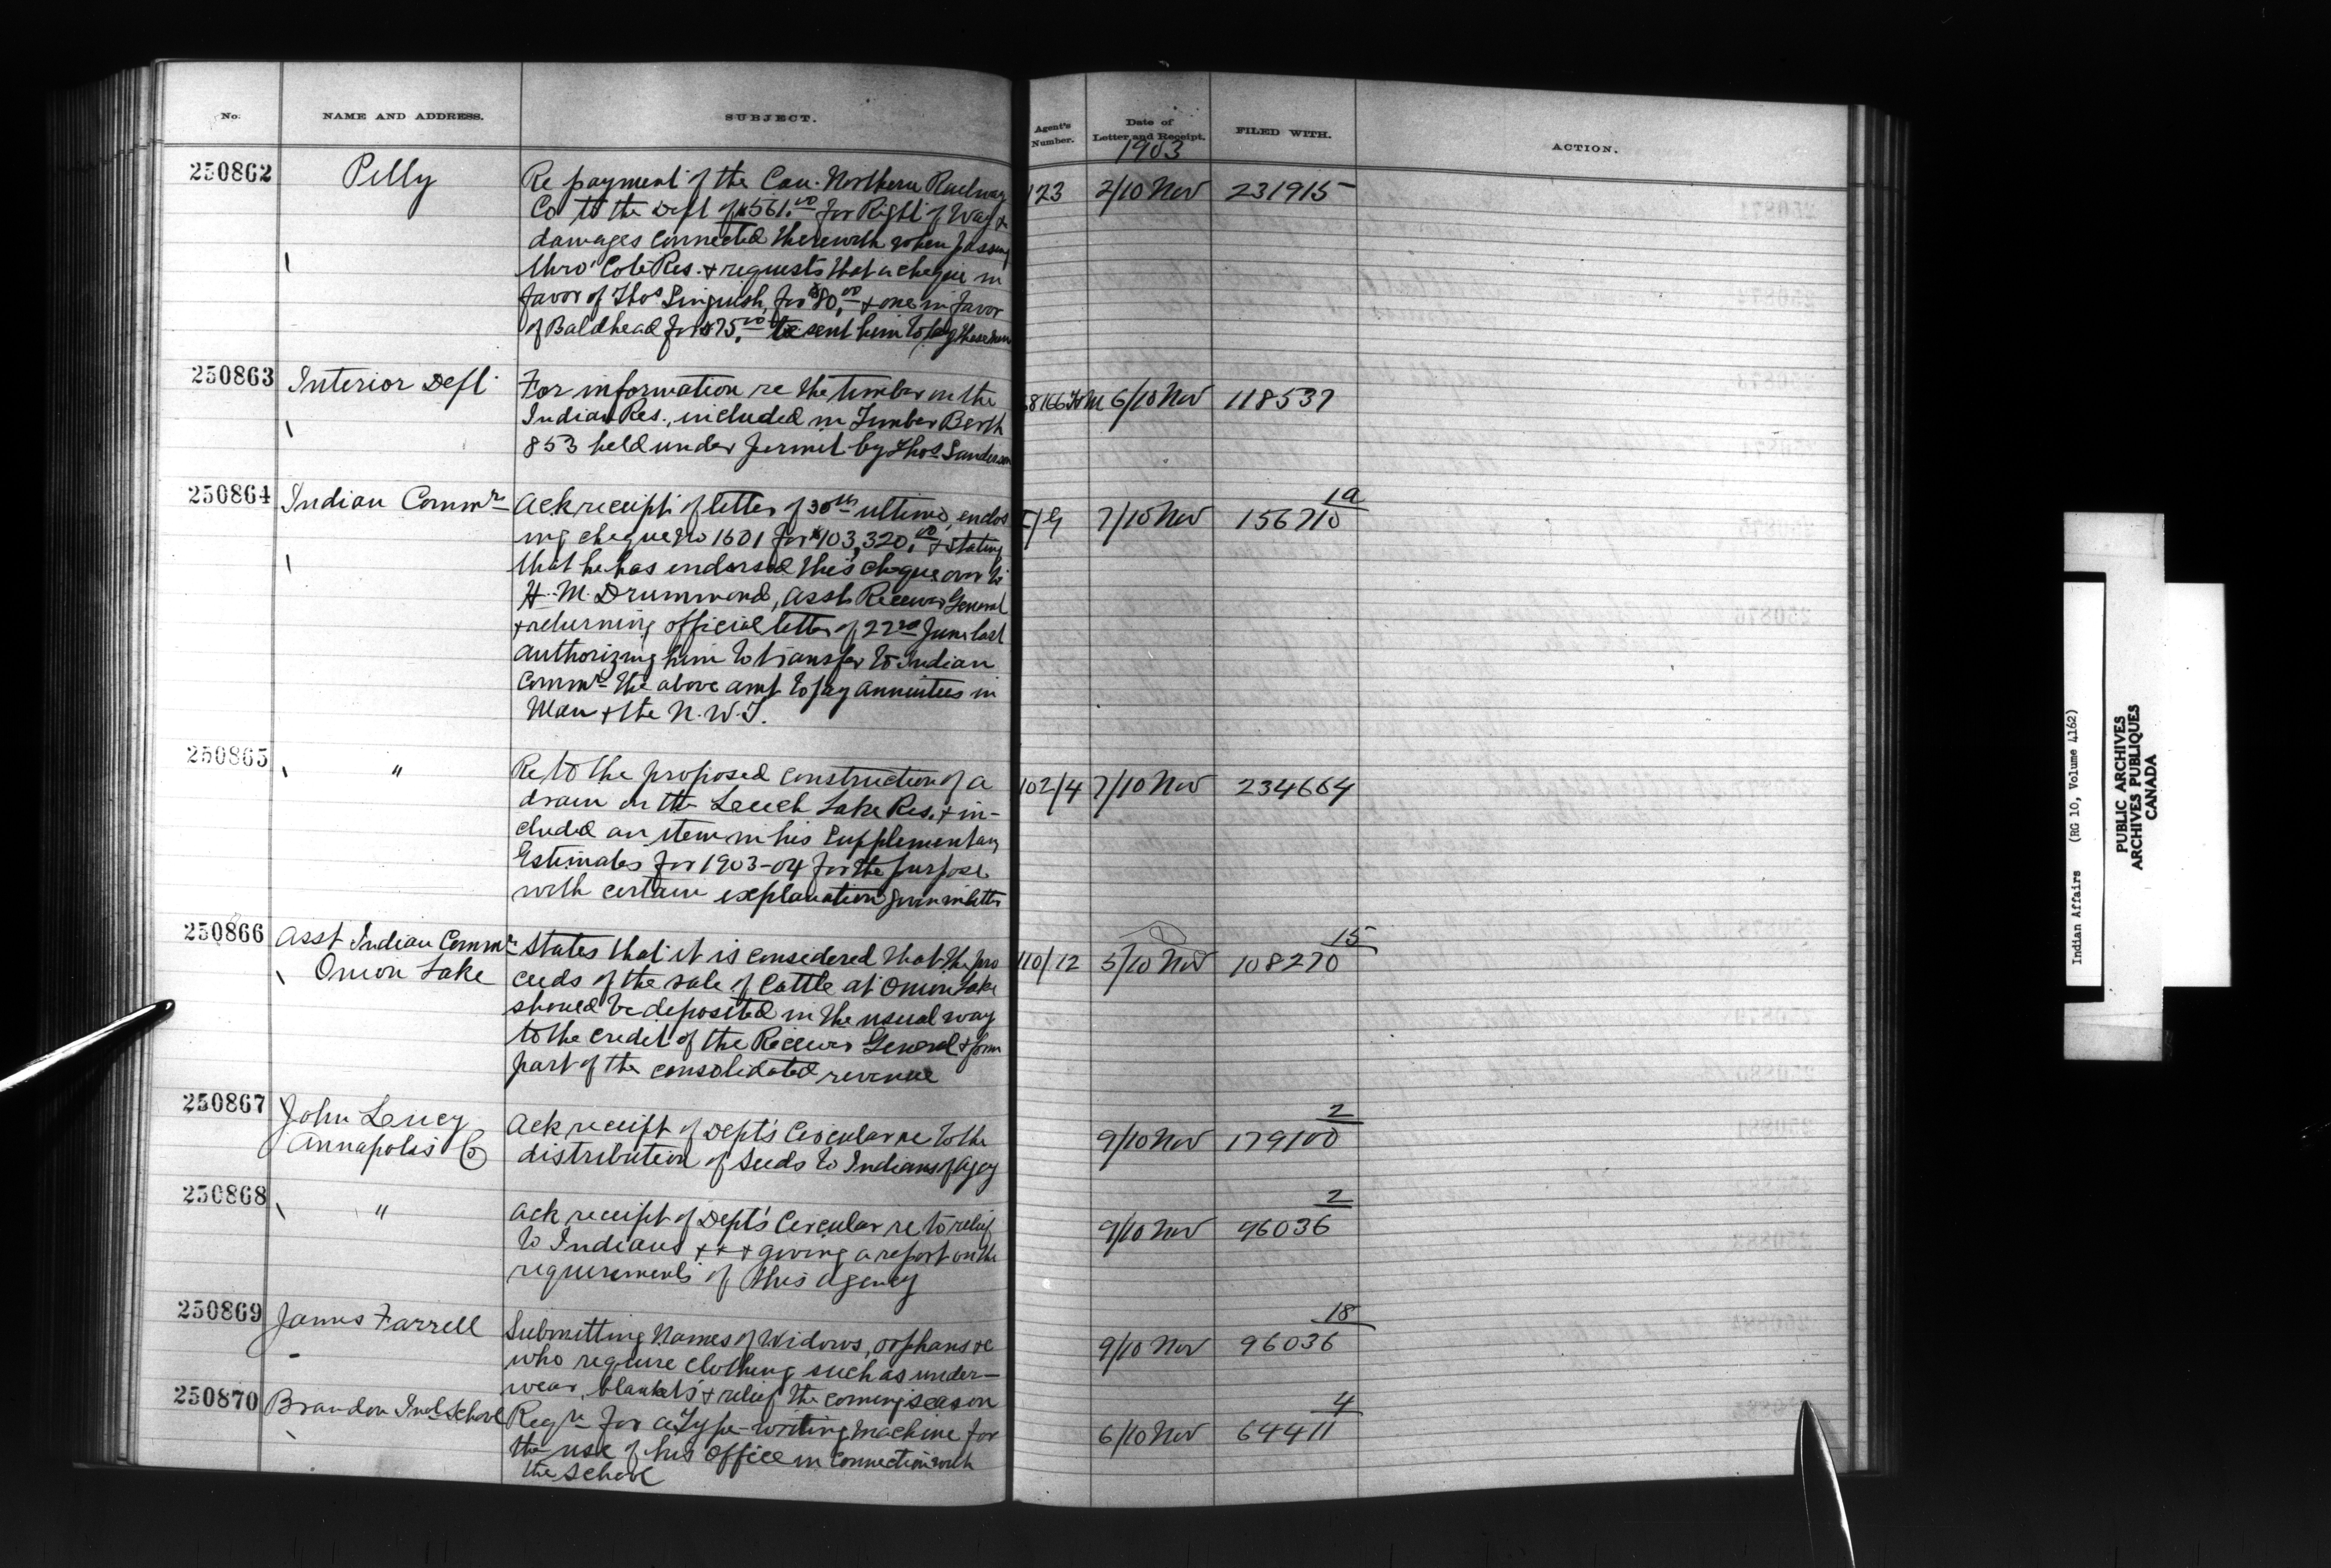 No.
NAME AND ADDRESS.
SUBJECT.
Agent's Number.
Date of Letter and Receipt.
FILED WITH.
ACTION.
1903
250862
Pelly
Re payment of the Can. Northern Railway
Co to the Dept of $561.00 for Right of Way &
damages connected therewith when passing
thro' Cote Res. & requests that a cheque in
favor of Thos Singuish for $80.00 & one in favor
of Baldhead for $75.00 be sent him to pay these men
123
2/10 Nov
231915
250863
Interior Dept.
For information re the timber on the
Indian Res., included in Timber Berth
853 held under permit by Thos Sanderson
6/10 Nov
118537
250864
Indian Commr
Ack receipt of letter of 30th ultimo, enclos
ing cheque No 1601 for $103,320.00 & stating
that he has endorsed this cheque over to
H. M. Drummond, Asst Receiver General
& returning official letter of 22nd June last
authorizing him to transfer to Indian
Commr the above amt to pay annuities in
Man & the N.W.T.
7/10 Nov
1a
156710
250865
"
Re to the proposed construction of a
drain on the Leech Lake Res. & in-
cluded an item in his Supplementary
Estimates for 1903-04 for the purpose
with certain explanation given in letter
102/4
7/10 Nov
234664
250866
Asst Indian Commr
Onion Lake
States that it is considered that the pro
ceeds of the sale of Cattle at Onion Lake
should be deposited in the usual way
to the credit of the Receiver General & form
part of the consolidated revenue
110/12
5/10 Nov
15
108270
250867
John Lecey
Annapolis Co
Ack receipt of Dept's Circular re to the
distribution of Seeds to Indians of Agcy
9/10 Nov
2
179100
250868
"
Ack receipt of Dept's Circular re to relief
to Indians + + + giving a report on the
requirements of this agency
9/10 Nov
2
96036
250869
James Farrell
Submitting Names of Widows, orphans &c
who require clothing such as under-
wear, blankets & relief the coming season
9/10 Nov
18
96036
250870
Brandon Indl School
Reqn for a Type-writing machine for
the use of his Office in connection with
the School
6/10 Nov
4
64411
Indian Affairs (RG 10, Volume 4162)
PUBLIC ARCHIVES
ARCHIVES PUBLIQUES
CANADA